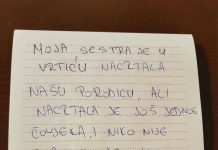 MOJA SESTRA JE U
VRTIĆU NACRTALA
NAŠU PORODICU, ALI
NACRTALA JE JOŠ JEDNOG
ČOVJEKA, I NIKO NIJE